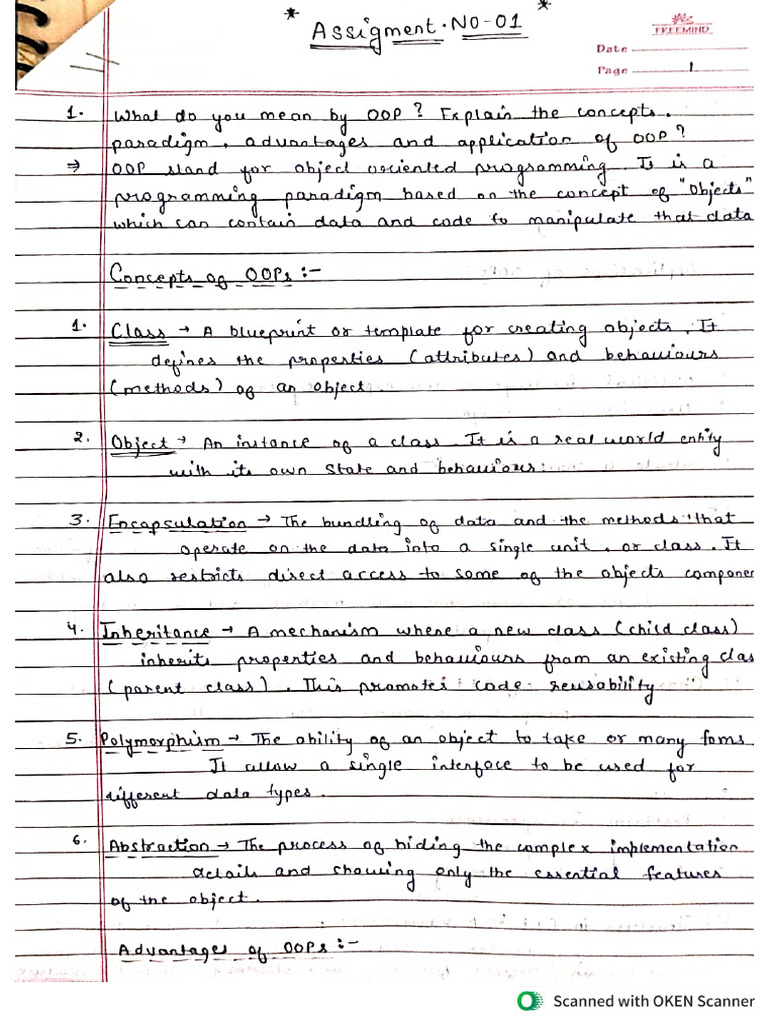 * Assigment. NO-01 *
FREEMIND
Date
Page 1
1. What do you mean by OOP? Explain the concepts,
paradigm, advantages and application of OOP?
⇒ OOP stand for object oriented programming. It is a
programming paradigm based on the concept of "Objects"
which can contain data and code to manipulate that data
Concepts of OOPs :-
1. Class → A blueprint or template for creating objects. It
defines the properties (attributes) and behaviours
(methods) of an object.
2. Object → An instance of a class. It is a real world entity
with its own state and behaviours.
3. Encapsulation → The bundling of data and the methods that
operate on the data into a single unit, or class. It
also restricts direct access to some of the objects componen
4. Inheritance → A mechanism where a new class (child class)
inherits properties and behaviours from an existing clas
(parent class). This promotes code reusability
5. Polymorphism → The ability of an object to take or many foms
It allow a single interface to be used for
different data types.
6. Abstraction → The process of hiding the complex implementation
details and showing only the essential features
of the object.
Advantages of OOPs :-
Scanned with OKEN Scanner